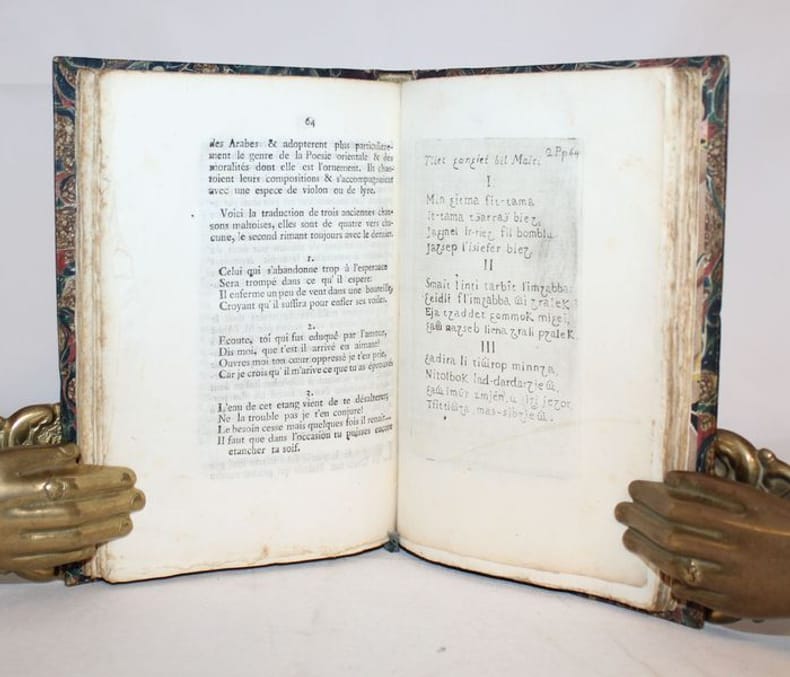 64
des Arabes & adopterent plus particuliere-
ment le genre de la Poesie orientale & des
moralités dont elle est l'ornement. Ils chan-
toient leurs compositions & s'accompagnoient
avec une espece de violon ou de lyre.
Voici la traduction de trois anciennes chan-
sons maltoises, elles sont de quatre vers cha-
cune, le second rimant toujours avec le dernier.
1.
Celui qui s'abandonne trop à l'esperance
Sera trompé dans ce qu'il espere:
Il enferme un peu de vent dans une bouteille,
Croyant qu'il suffira pour enfler ses voiles.
2.
Ecoute, toi qui fus eduqué par l'amour,
Dis moi, que t'est il arrivé en aimant!
Ouvres moi ton cœur oppressé je t'en prie,
Car je crois qu'il m'arive ce que tu as éprouvé
3.
L'eau de cet etang vient de te désalterer,
Ne la trouble pas je t'en conjure!
Le besoin cesse mais quelques fois il renait...
Il faut que dans l'occasion tu puisses encore
etancher ta soif.
2 Pp 64
bil Malti
I
Min fit-tama
It-tama
fil bomblu
l'isiefer
II
Smait l'inti tarbit
Eja
liena
III
li minnza,
Nitolbok